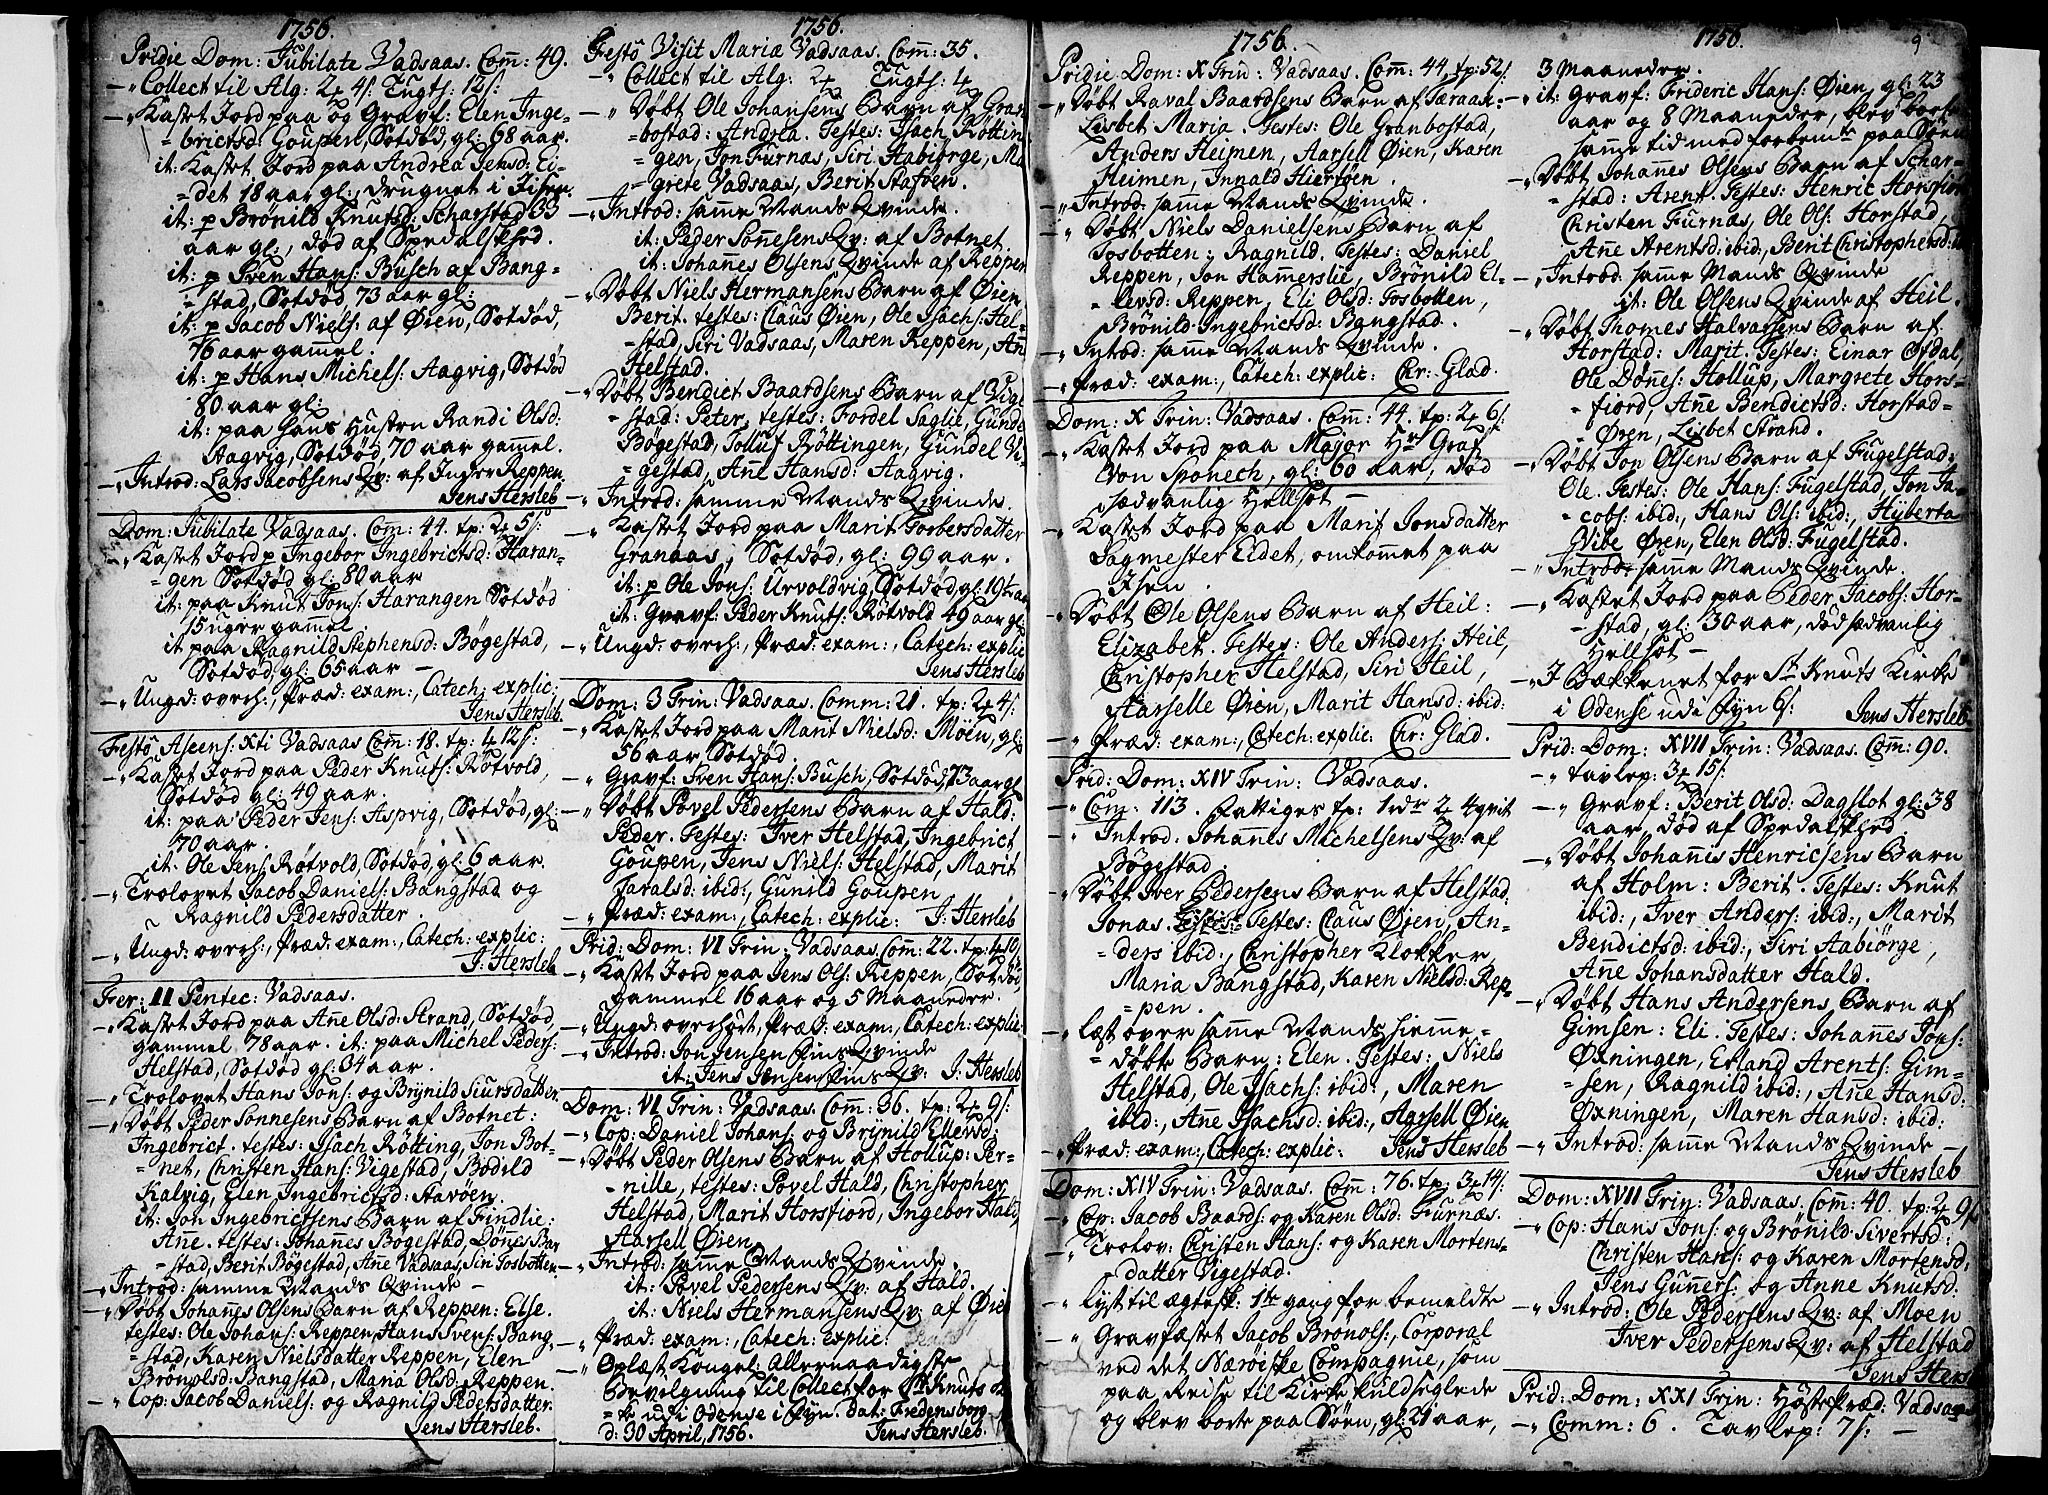 1756.
Pridie Dom: Jubilate Vadsaas. Com̄: 49.
-" Collect til Alg: 2 4s. Tugts: 12s:
-" Kastet Jord paa og Gravf: Elen Inge-
=brictsd: Goupen, Sotdød, gl: 68 aar.
it: Kastet Jord paa Andrea Jensd: Ei-
=det 18 aar gl:, drugnet i Jisen.
it: p Brønild Knutsd: Scharstad 33
aar gl:, død af Spedalskhed.
it: p Sven Hans: Busch af Bang-
=stad, Sotdød, 73 aar gl:
it: p Jacob Niels: af Øien, Sotdød,
76 aar gammel.
it: p Hans Michels: Aagvig, Sotdød
80 aar gl:
it: paa hans Hustru Randi Olsd:
Aagvig, Sotdød, 70 aar gam̄el.
-" Introd: Lars Jacobsens Qv: af Inder Reppen.
Jens Hersleb
Dom: Jubilate Vadsaas. Com̄: 44. tp: 2 5s:
-" Kastet Jord p Ingebor Ingebrictsd: Haran-
=gen Sotdød gl: 80 aar
it: paa Knut Jons: Harangen Sotdød
15 uger gam̄el.
it paa Ragnild Stephensd: Bøgestad,
Sotdød, gl: 65 aar -
-" Ungd: overh:, Præd: exam:, Catech: explic:
Jens Hersleb.
Festo Ascens: Xti Vadsaas Com̄: 18. tp: 4 12s:
-" Kastet Jord paa Peder Knuts: Røtvold,
Sotdød gl: 49 aar.
it: paa Peder Jens: Aspvig, Sotdød, gl:
70 aar.
it: Ole Jens: Røtvold, Sotdød, gl: 6 aar.
-" Trolovet Jacob Daniels: Bangstad og
Ragnild Pedersdatter.
-" Ungd: overh:, Præd: exam:, Catech: explic:
J: Hersleb
Fer: II Pentec: Vadsaas.
-" Kastet Jord paa An̄e Olsd: Strand, Sotdød,
gammel 78 aar. it: paa Michel Peders:
Helstad, Sotdød gl: 34 aar.
-" Trolovet Hans Jons: og Brynild Siursdatter
-" Døbt Peder Sonnesens Barn af Botnet:
Ingebrict. testes: Isach Røtting, Jon Bot-
=net, Christen Hans: Vigestad, Bodild
Kalvig, Elen Ingebrictsd: Stavøen.
it: Jon Ingebrictsens Barn af Findlie:
An̄e. testes: Johan̄es Bøgestad, Dønes Bar-
=stad, Berit Bøgestad, An̄e Vadsaas, Siri Fosbotten.
-" Introd: samme Mands Qvinde -
-" Døbt Johan̄es Olsens Barn af Reppen: Else.
testes: Ole Johans: Reppen, Hans Svens: Bang-
=stad, Karen Nielsdatter Reppen, Elen
Brønolsd: Bangstad, Maria Olsd: Reppen.
-" Cop: Jacob Daniels: og Ragnild Pedersdatter.
Jens Hersleb.
1756.
Festo Visit Mariæ Vadsaas. Com̄: 35.
-" Collect til Alg: 2 Tugts: 4
-" Døbt Ole Johansens Barn af Gran-
=bostad: Andrea. Testes: Isach Røttin
gen, Jon Furnas, Siri Aabiørge, Ma
grete Vadsaas, Berit Staføen.
-" Introd: samme Mands Qvinde.
it: Peder Son̄esens Qv: af Botnet.
it: Johan̄es Olsens Qvinde af Reppen
-" Døbt Niels Hermansens Barn af Øien
Berit. testes: Claus Øien, Ole Isachs: Hel-
stad, Siri Vadsaas, Maren Reppen, An̄
Helstad.
-" Døbt Bendict Baardsens Barn af Vige
=stad: Peter, testes: Fordel Saglie, Gunde
Bøgestad, Tolluf Røttingen, Gundel Vi-
=gestad, An̄e Hansd: Aagvig.
-" Introd: samme Mands Qvinde.
-" Kastet Jord paa Marit Torbersdatter
Granaas, Sotdød, gl: 99 aar.
it: p Ole Jons: Urvoldvig, Sotdød, gl: 19½ aar
it: Gravf: Peder Knuts: Røtvold 49 aar gl:
-" Ungd: overh:, Præd: exam:, Catech: explic
Jens Hersleb
Dom: 3 Trin: Vadsaas. Comm: 21. tp: 2 4s:
-" Kastet Jord paa Marit Nielsd: Moen, gl:
56 aar, Sotdød.
-" Gravf: Sven Hans: Busch, Sotdød, 73 aar gl
-" Døbt Povel Pedersens Barn af Hald:
Peder. Testes: Iver Helstad, Ingebrict
Goupen, Jens Niels: Helstad, Marit
Faralsd: ibid:, Gunild Goupen
-" Præd: exam:, Catech: explic: J: Hersleb
Prid: Dom: VI Trin: Vadsaas. Com̄: 22. tp: 4 10s
-" Kastet Jord paa Jens Ols: Reppen, Sotdød,
gammel 16 aar og 5 Maaneder.
-" Ungd: overhørt, Præd: exam:, Catech: explic:
-" Introd: Jon Jensen Fins Qvinde
it: Jens Jensen Fins Qv: J: Hersleb
Dom: VI Trin: Vadsaas. Com̄: 36. tp: 2 9s:
-" Cop: Daniel Johans: og Brynild Ellevsd:
-" Døbt Peder Olsens Barn af Hollup: Per-
=nille, testes: Povel Hald, Christopher
Helstad, Marit Horsfiord, Ingebor Hald,
Aarsell Øien.
-" Introd: sam̄e Mands Qvinde.
it: Povel Pedersens Qv: af Hald.
it: Niels Hermansens Qv: af Øien
-" Præd: exam:, Catech: Explic:
-" Oplæst Kongel: Allernaadigste
Bevilgning til Collect for St Knuts
=ke udi Odense i Fyn. Dat: Fredensborg
d: 30 April, 1756. Jens Hersleb.
1756.
Pridie Dom: X Trin: Vadsaas. Com̄: 44, tp: 52s:
-" Døbt Raval Baardsens Barn af Teraak:
Lisbet Maria. Testes: Ole Granbostad,
Anders Heimen, Aarsell Øien, Karen
Heimen, Innald Hiertøen.
-" Introd: samme Mands Qvinde.
-" Døbt Niels Danielsens Barn af
Fosbotten: Ragnild. Testes: Daniel
Reppen, Jon Hammerslie, Brønild El-
=levsd: Reppen, Eli Olsd: Fosbotten,
Brønild Ingebrictsd: Bangstad.
-" Introd: samme Mands Qvinde.
-" Præd: exam:, Catech: explic: Chr: Glad.
Dom: X Trin: Vadsaas. Com̄: 44. tp: 2 6s:
-" Kastet Jord paa Major Hr Graf
Von Sponech, gl: 60 aar, død
sædvanlig Hellsot -
-" Kastet Jord paa Marit Jonsdatter
Sagmester Eidet, omkommet paa
Isen.
-" Døbt Ole Olsens Barn af Heil:
Elizabet. Testes: Ole Anders: Heil,
Christopher Helstad, Siri Heil,
Aarselle Øien, Marit Hansd: ibid:
-" Præd: exam:, Catech: explic: Chr: Glad.
Prid: Dom: XIV Trin: Vadsaas.
-" Com̄: 113. Fattiges tp: 1 rdr 2 4 qvit
-" Introd. Johannes Michelsens Qv: af
Bøgestad.
-" Døbt Iver Pedersens Barn af Helstad
Jonas. Testes: Claus Øien, An-
=ders ibid:, Christopher Klokker,
Maria Bangstad, Karen Nielsd: Rep-
=pen.
-" Læst over samme Mands hieme-
=døbte Barn: Elen. Testes: Niels
Helstad, Ole Isachs: ibid:, Maren
ibid:, An̄e Isachsd: ibid:, Aarsell Øien
-" Præd: exam:, Catech: explic: Jens Hersleb
Dom: XIV Trin: Vadsaas. Com̄: 76. tp: 3 14s:
-" Cop: Jacob Baards: og Karen Olsd: Furnæs.
-" Trolov: Christen Hans: og Karen Mortens-
datter Vigestad.
-" Lyst til ægtesk: 1te gang for bemeldte
-" Gravfæstet Jacob Brønols:, Corporal
ved det Nærøiske Compagnie, som
paa Reise til Kirke kuldseiglede
og blev borte paa Søen, gl: 21 aar,
1756. 9
3 Maaneder.
-" it: Gravf: Frideric Hans: Øien, gl: 23
aar og 8 Maaneder, blev borte
samme tid med forbemte paa Søen
-" Døbt Johannes Olsens Barn af Schar-
=stad: Arent. Testes: Henric Horsfiord
Christen Furnas, Ole Ols: Horstad,
An̄e Arentsd: ibid:, Berit Christophersd:
-" Introd: samme Mands Qvinde
it: Ole Olsens Qvinde af Heil.
-" Døbt Thomes Halvarsens Barn af
Horstad: Marit. Testes: Einar Øfdal,
Ole Dønes: Hollup, Margrete Hors-
=fiord, An̄e Bendictsd: Horstad-
=Øren, Lisbet Strand.
-" Døbt Jon Olsens Barn af Fugelstad:
Ole. Testes: Ole Hans: Fugelstad, Jon Ja-
=cobs: ibid:, Hans Ols: ibid:, Hyberta
Vibe Øren, Elen Olsd: Fugelstad.
-" Introd: samme Mands Qvinde.
-" Kastet Jord paa Peder Jacobs: Hor-
=stad, gl: 30 aar, død sædvanlig
Hellsot -
-" I Bækkenet for St Knuts Kirke
i Odense udi Fyn 6s: Jens Hersleb
Prid: Dom: XVII Trin: Vadsaas. Com̄: 90.
-" tavlep: 3 15s:
-" Gravf: Berit Olsd: Dagslot gl: 38
aar, død af Spedalskhed.
-" Døbt Johan̄is Henricsens Barn
af Holm: Berit. Testes: Knut
ibid:, Iver Anders: ibid:, Marit
Bendictsd: ibid:, Siri Aabiørge,
An̄e Johansdatter Hald.
-" Døbt Hans Andersens Barn af
Gimsen: Eli. Testes: Johan̄es Jons:
Øxningen, Erland Arents: Gim-
=sen, Ragnild ibid:, An̄e Hansd:
Øxningen, Maren Hansd: ibid:
-" Introd: samme Mands Qvinde -
Jens Hersleb
Dom: XVII Trin: Vadsaas. Com̄: 40. tp: 2 9s
-" Cop: Hans Jons: og Brønild Sivertsd:
Christen Hans: og Karen Mortensd,
Jens Gun̄ers: og Anne Knutsd:
-" Introd: Ole Pedersens Qv: af Moen
Iver Pedersens Qv: af Helstad
Jens Hersl
Prid: Dom: XXI Trin: Høstepræd: Vadsaas
-" Comm: 6. Tavlep: 7s: -